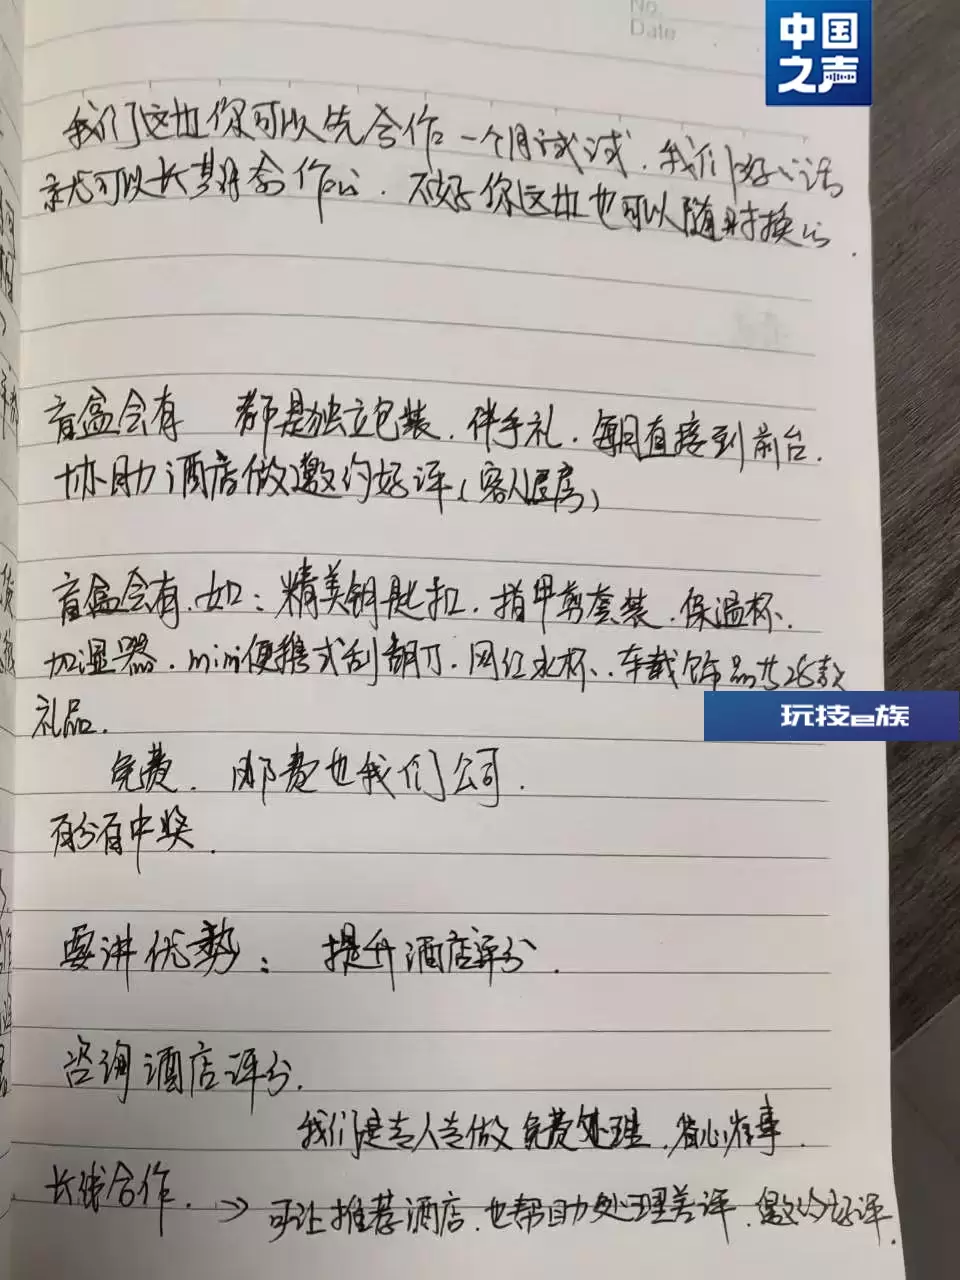 No.
Date
中国
之声
我们这边你可以先合作一个月试试.我们好的话
就可以长期合作的.不好你这边也可以随时换的.
盲盒会有 都是独立包装.伴手礼.每月直接到前台.
协助酒店做邀约好评(客人退房)
盲盒会有.如:精美钥匙扣.指甲剪套装.保温杯.
加湿器.mini便携式刮胡刀.网红水杯.车载饰品共26款
礼品.
玩技e族
免费.邮费也我们公司.
百分百中奖.
要讲优势: 提升酒店评分.
咨询酒店评分.
我们是专人专做免费处理.省心省事.
长线合作.→可让推荐酒店.也帮助处理差评.邀约好评.